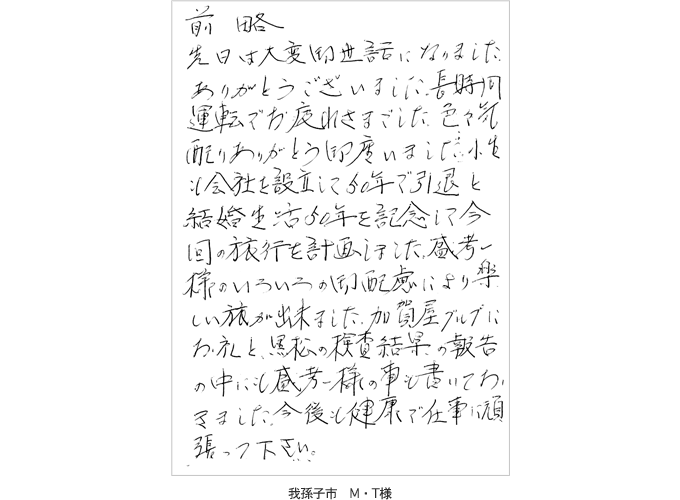 前略
先日は大変御世話になりました
ありがとうございました。長時間
運転でお疲れさまでした。色々気
配りありがとう御座いました。小生
も会社を設立して50年で引退と
結婚生活50年を記念して今
回の旅行を計画しました。盛考一
様のいろいろの御配慮により楽
しい旅が出来ました。加賀屋ブログに
お礼と、黒松の検査結果の報告
の中にも盛考一様の事も書いてお
きました。今後も健康で仕事に頑
張って下さい。
我孫子市 M・T様